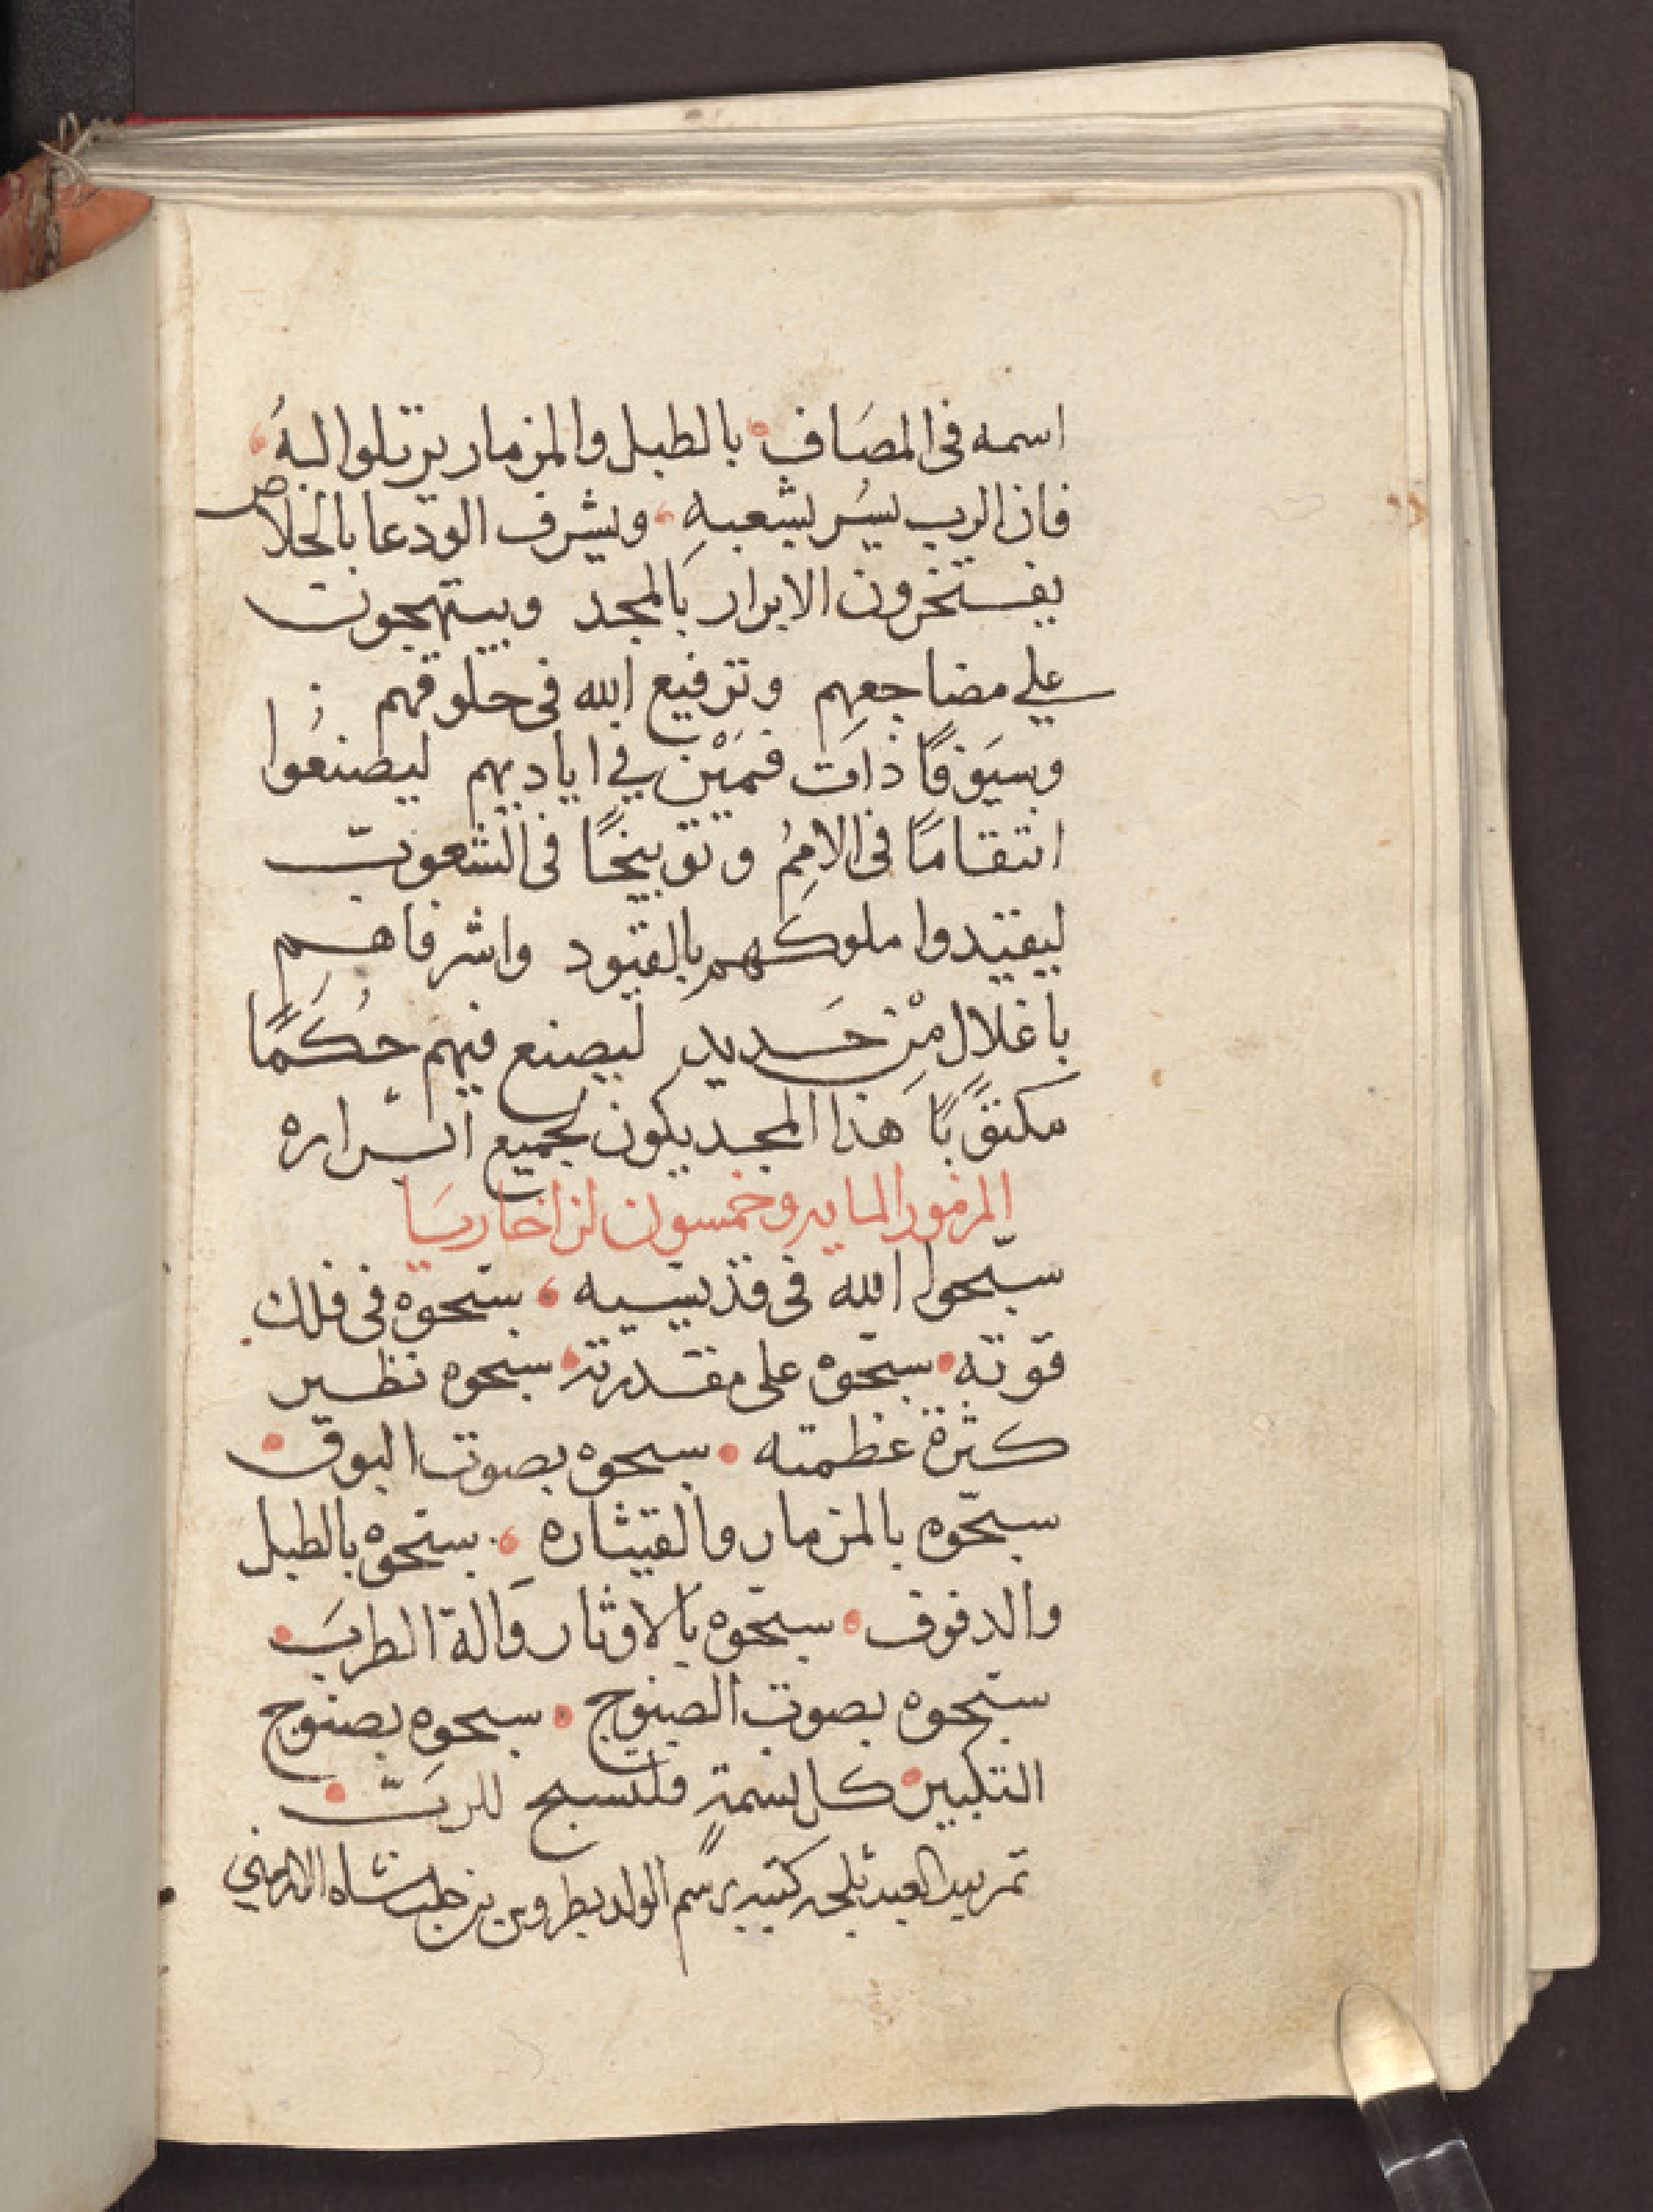 اسمه في المصَاف بالطبل والمزمار يرتلوا اليهُ
فان الرب يسُر بشعبهِ ويشرف الودعا بالخلاص
يفتخرون الابرار بالمجد ويبتهجون
علي مضاجعهم وترفيع الله في حلوقهم
وسيَوفًا ذات فمَيْن في اياديهم ليصنعُوا
انتقامًا في الاممُ وتوبيخًا في الشعوب
ليقيّدوا ملوكهم بالقيود واشرفاهم
باغلال مِنْ حَديد ليصنع فيهم حُكمًا
مكتوبًا هَذا المجد يكون لجميع ابراره
المزمور المايه وخمسون
سبّحوا الله في قديسيه سبّحوه في فلك
قوته سبّحوه على مقدرته سبحوه نظير
كثرة عظمته سبحوه بصوت البوق
سبّحوه بالمزمار والقيثاره سبّحوه بالطبل
والدفوف سبّحوه بالاوتار وَالة الطربَ
سبّحوه بصوت الصنوج سبحوه بصنوج
التكبير كل نسمةٍ فلتسبح للربّ
الولد بطروس بن